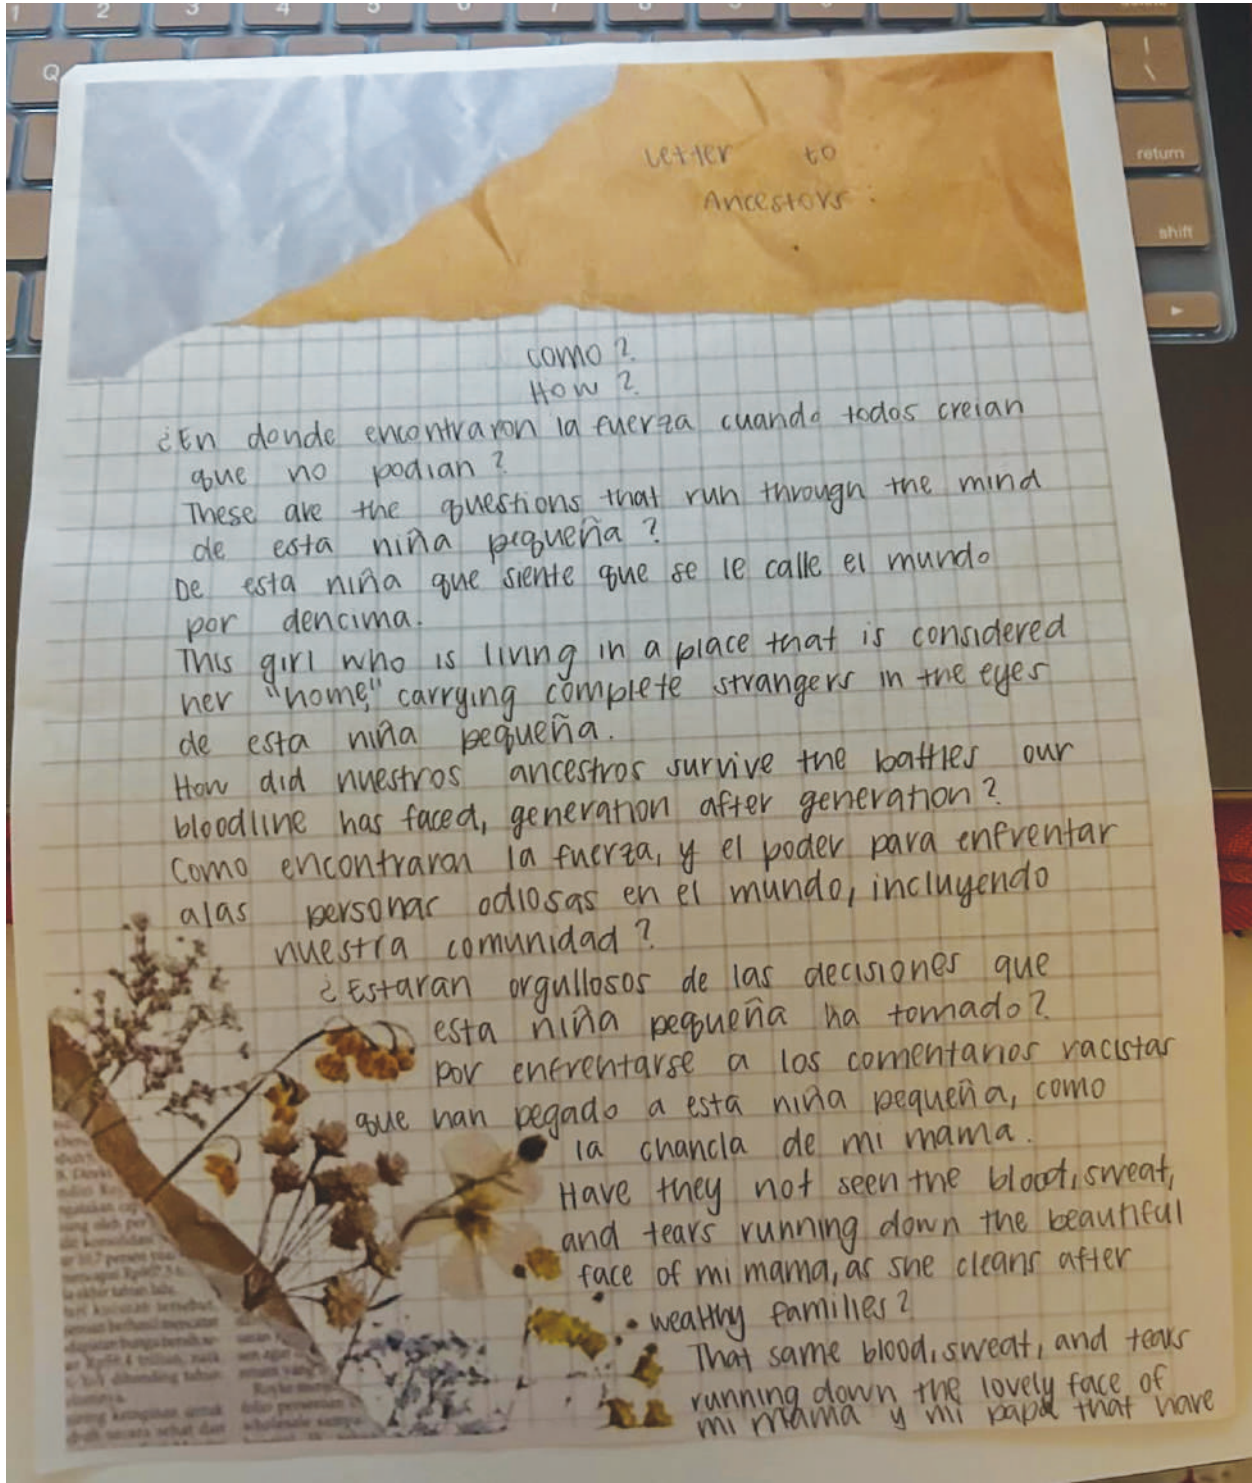 1 2 3 4 5 6 7 8 9
Q
return
shift
Letter to
Ancestors:
Como?
How?
¿En donde encontraron la fuerza cuando todos creian
que no podian?
These are the questions that run through the mind
de esta niña pequeña?
De esta niña que siente que se le calle el mundo
por dencima.
This girl who is living in a place that is considered
her "home," carrying complete strangers in the eyes
de esta niña pequeña.
How did nuestros ancestros survive the battles our
bloodline has faced, generation after generation?
Como encontraron la fuerza, y el poder para enfrentar
alas personas odiosas en el mundo, incluyendo
nuestra comunidad?
¿Estaran orgullosos de las decisiones que
esta niña pequeña ha tomado?
por enfrentarse a los comentarios racistas
que han pegado a esta niña pequeña, como
la chancla de mi mama.
Have they not seen the blood, sweat,
and tears running down the beautiful
face of mi mama, as she cleans after
wealthy families?
That same blood, sweat, and tears
running down the lovely face of
mi mama y mi papa that have